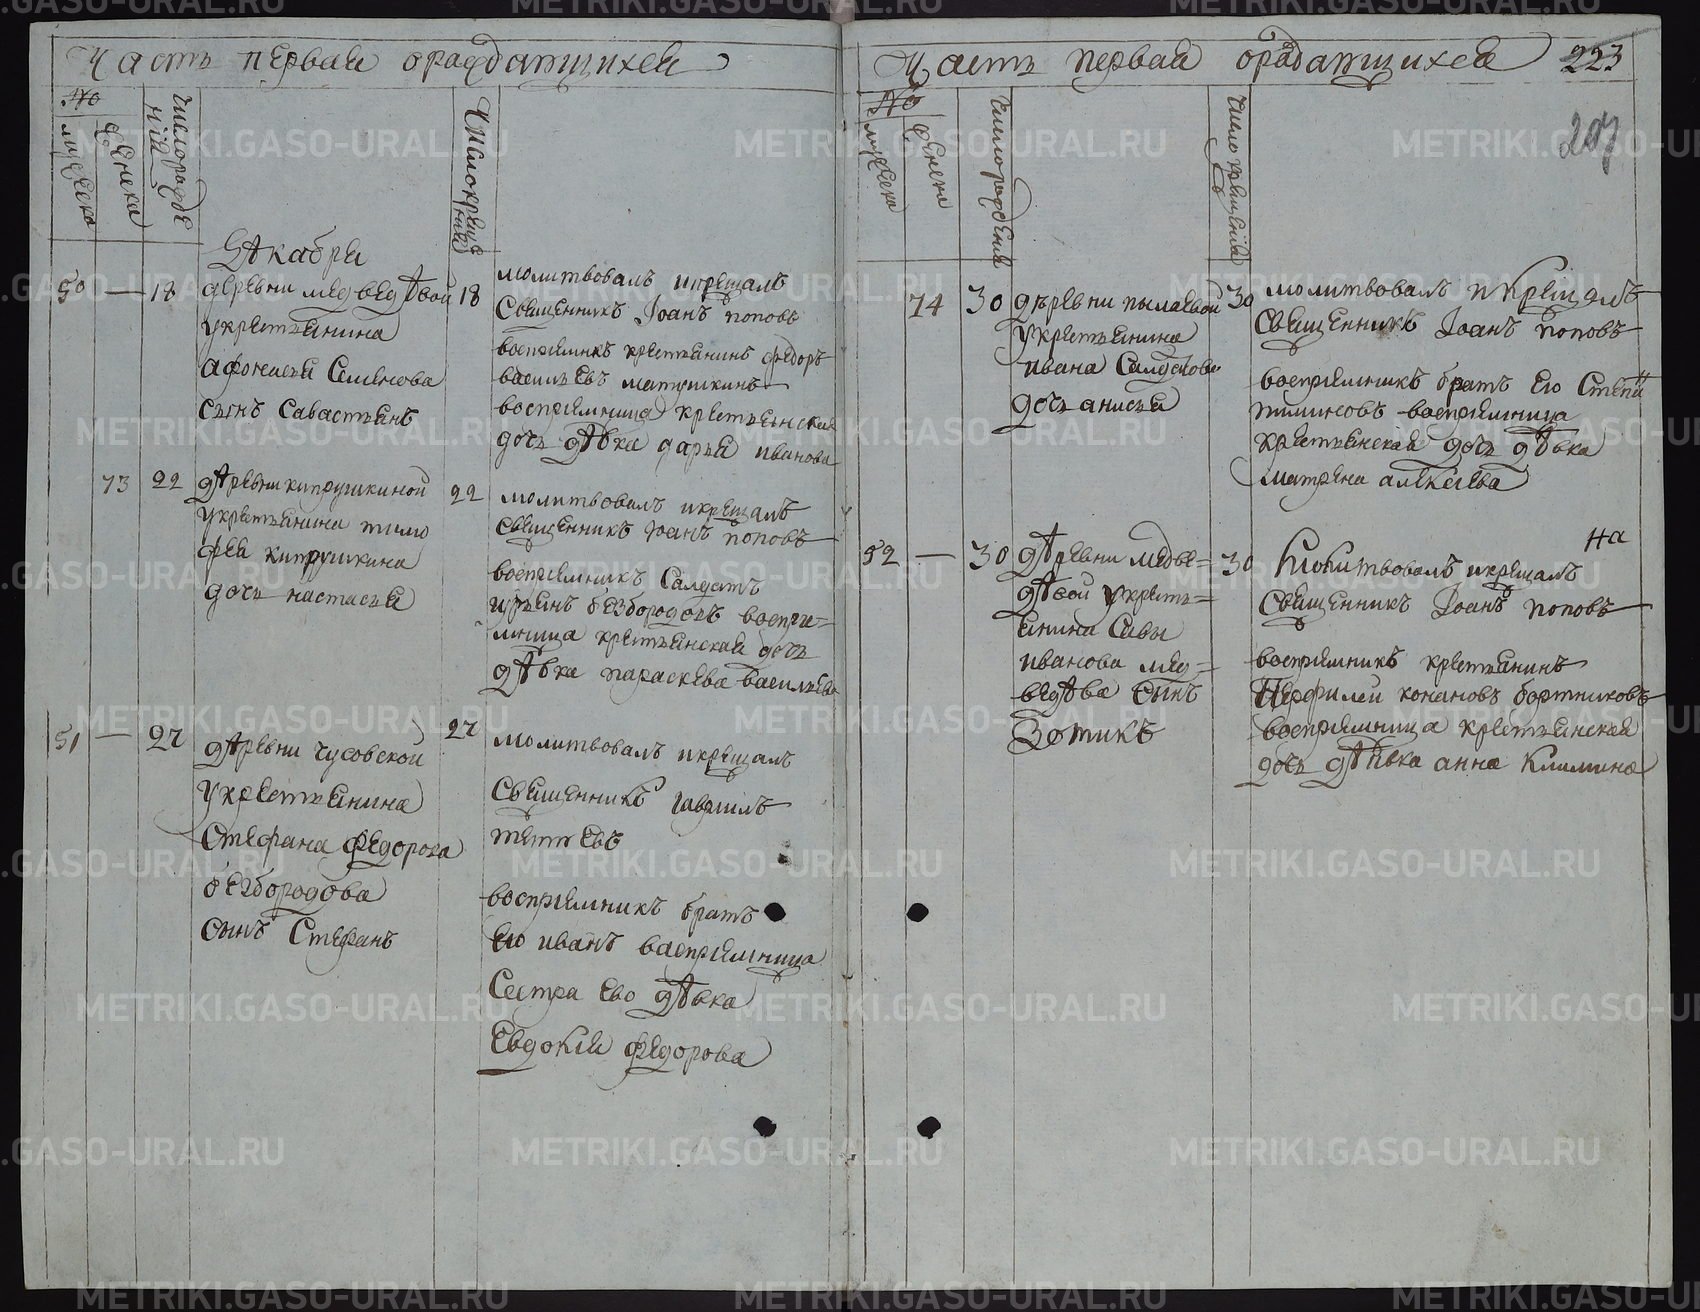 Часть первая ораждающихся
№
мужеска
женска
число рожде
ния
число креще
ния
Декабря
50 — 18 деревни медведѣвой 18
укрестьянина
афонасья Семенова
сынъ Савастьянъ
молитвовалъ икрещалъ
Священникъ Иоанъ поповъ
восприемникъ крестьянинъ федоръ
васильевъ матушкинъ
восприемница крестьянская
дочь дѣвка дарья иванова
73 22 деревни кипрушкиной 22
укрестьянина тимо
фея кипрушкина
дочь настасья
молитвовалъ икрещалъ
священникъ Иоанъ поповъ
восприемникъ Салдатъ
безбородовъ воспри=
емница крестьянская дочь
дѣвка параскева васильева
51 — 27 деревни чусовской 27
укрестьянина
Стефана федорова
безбородова
сынъ Стефанъ
молитвовалъ икрещалъ
Священникъ гавриилъ
восприемникъ братъ
Его иванъ васприемница
Сестра Ево дѣвка
Евдокия федорова
Часть первая ораждающихся 223
207
№
мужеска
женска
число рождения
число крещения
74 30 деревни пылаевой 30
укрестьянина
ивана
дочь анисья
молитвовалъ икрещалъ
Священникъ Иоанъ поповъ
восприемникъ братъ Его
восприемница
крестьянская дочь дѣвка
матрена алексеева
52 — 30 дѣревни медве= 30
дѣвой укресть=
янина Савы
иванова мед=
ведѣва сынъ
Зотикъ
на
Молитвовалъ икрещалъ
Священникъ Иоанъ поповъ
восприемникъ крестьянинъ
Перфилей конановъ бортниковъ
восприемница крестьянская
дочь дѣвка анна Климина
METRIKI.GASO-URAL.RU